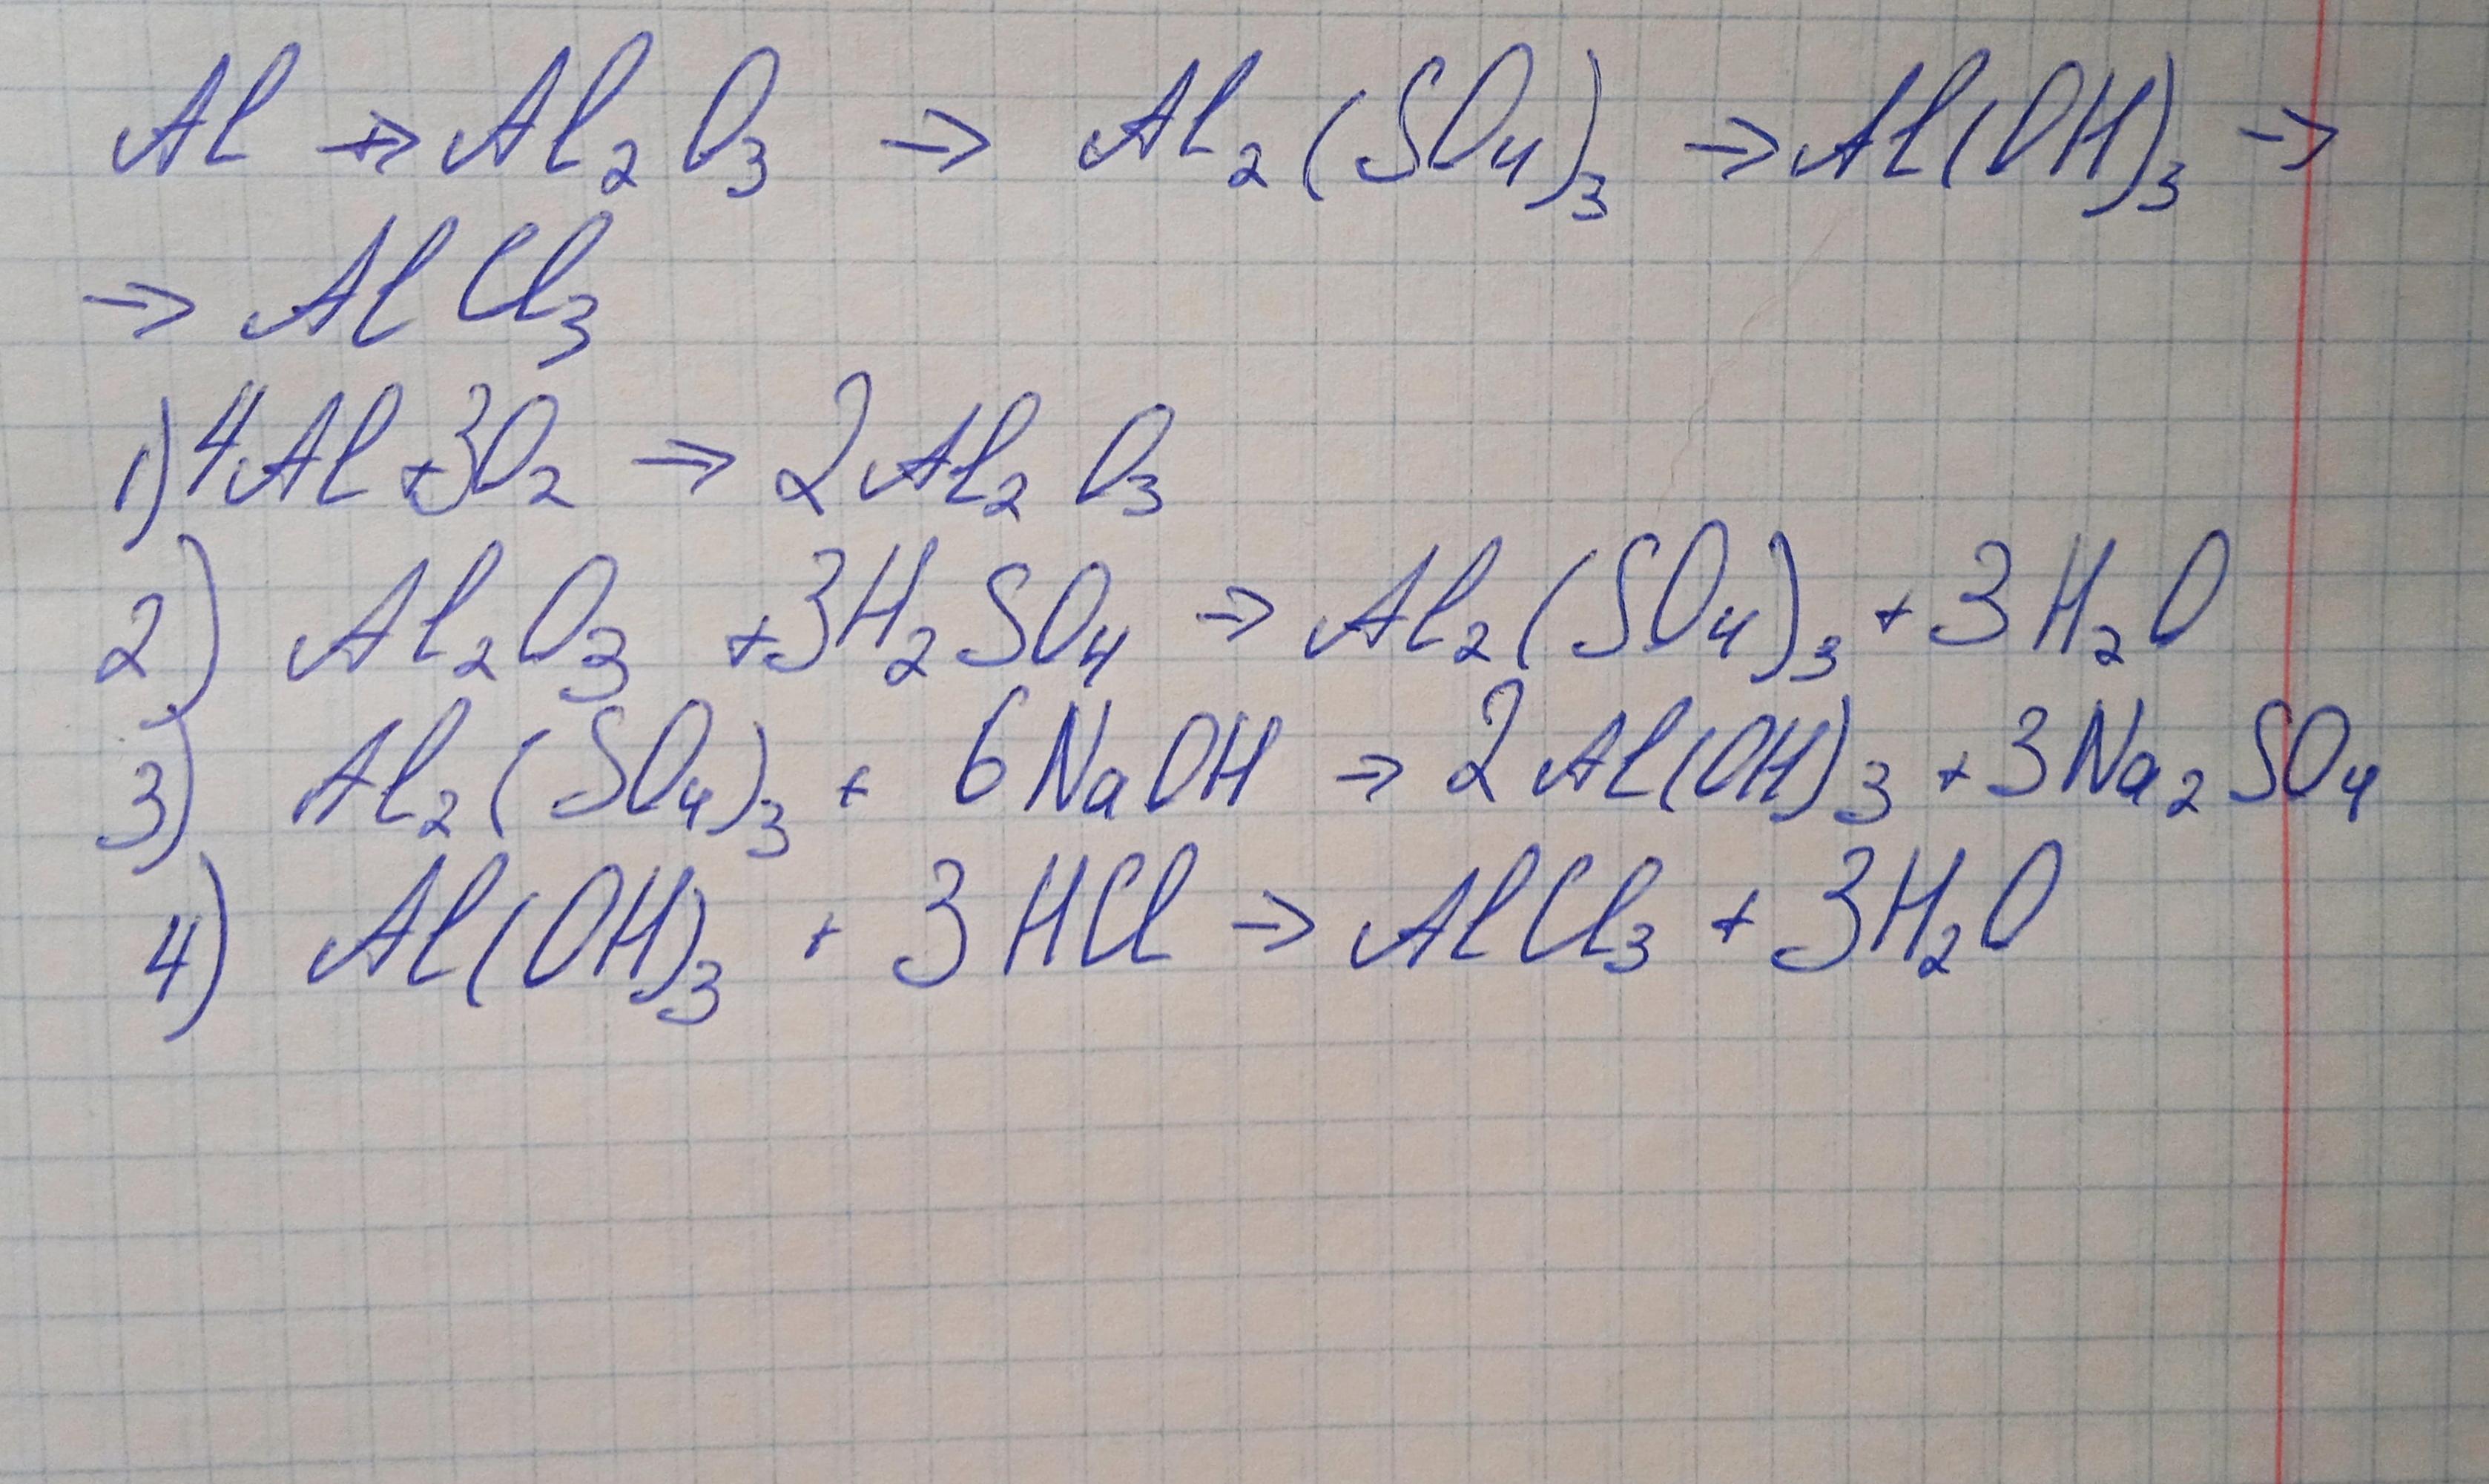 Al → Al₂O₃ → Al₂(SO₄)₃ → Al(OH)₃ →
→ AlCl₃
1) 4Al + 3O₂ → 2Al₂O₃
2) Al₂O₃ + 3H₂SO₄ → Al₂(SO₄)₃ + 3H₂O
3) Al₂(SO₄)₃ + 6NaOH → 2Al(OH)₃ + 3Na₂SO₄
4) Al(OH)₃ + 3HCl → AlCl₃ + 3H₂O